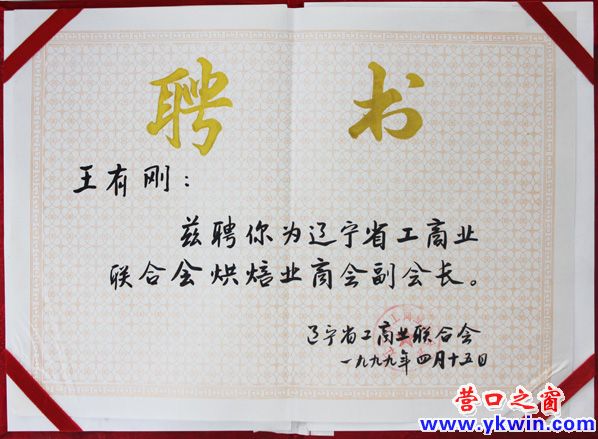 聘 书
王有刚：
兹聘你为辽宁省工商业
联合会烘焙业商会副会长。
辽宁省工商业联合会
一九九九年四月十五日
营口之窗
www.ykwin.com